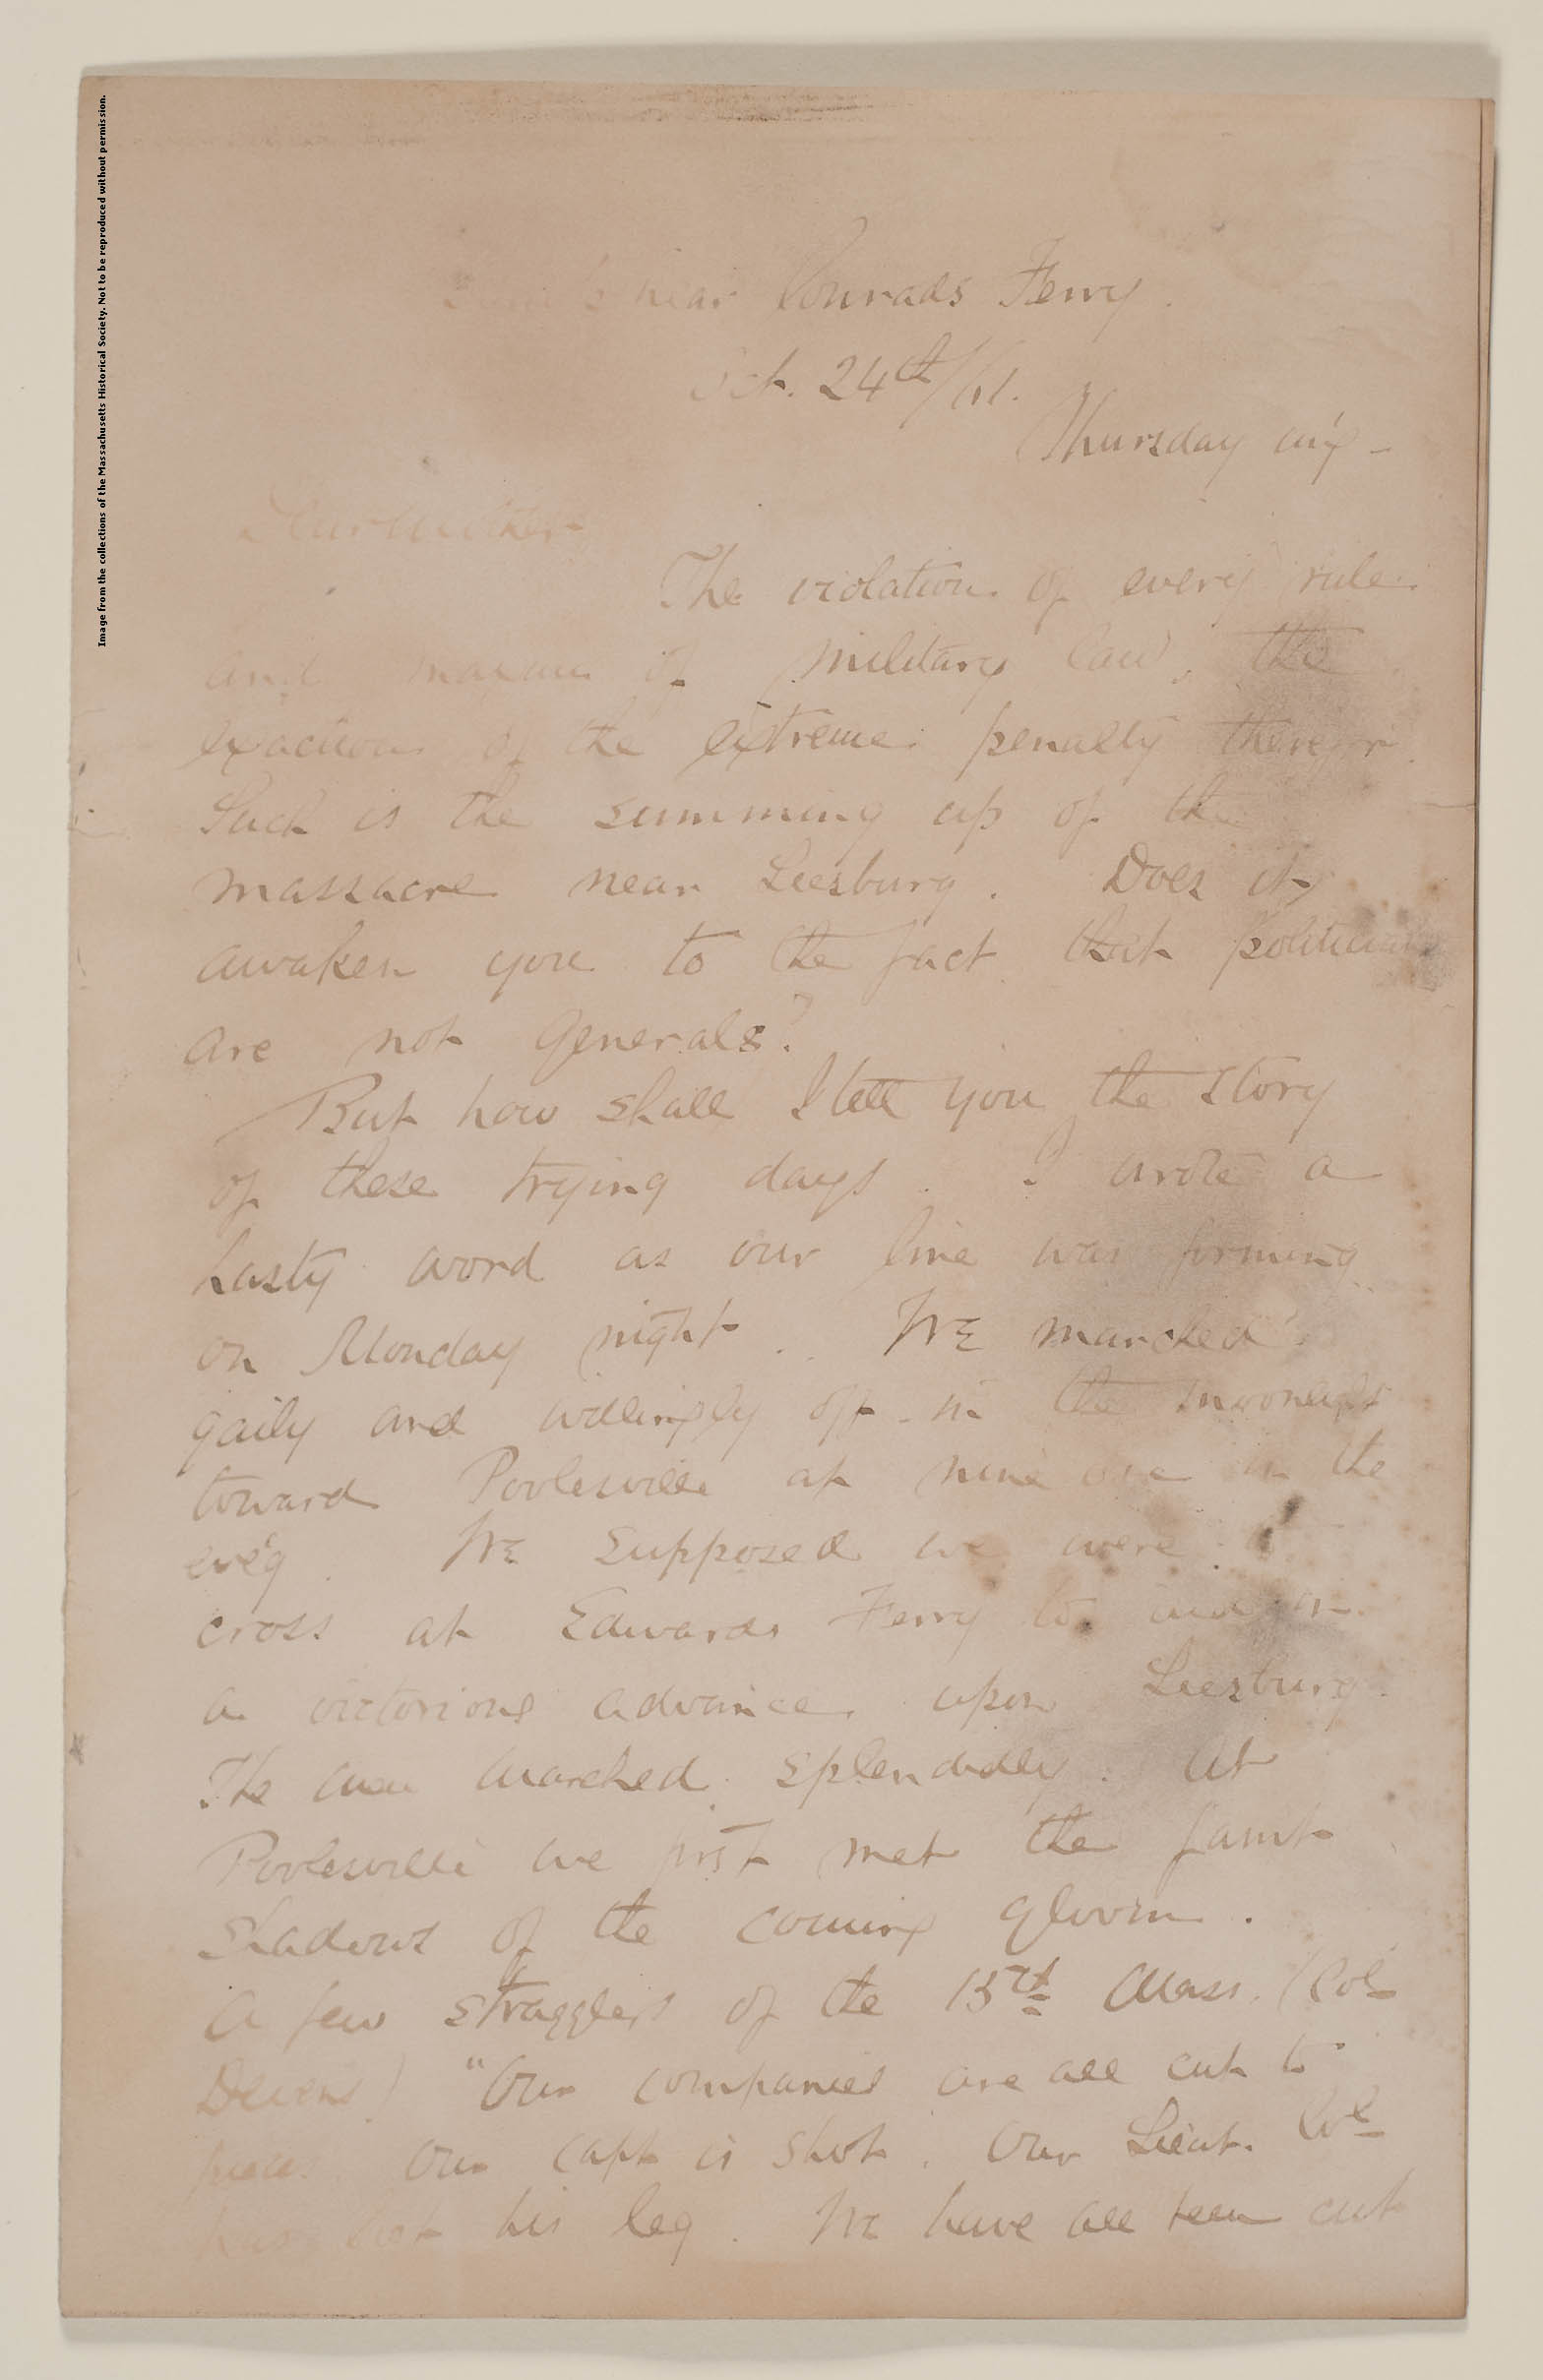 Image from the collections of the Massachusetts Historical Society. Not to be reproduced without permission.
near Conrads Ferry.
Oct. 24th/61.
Thursday m'g –
Dear Mother
The violation of every rule
and maxim of military law, the
exaction of the extreme penalty therefor.
Such is the summing up of the
massacre near Leesburg. Does it
awaken you to the fact that politicians
are not generals?
But how shall I tell you the story
of these trying days. I wrote a
hasty word as our line was forming
on Monday night. We marched
gaily and willingly off in the moonlight
toward Poolesville at nine in the
eve'g. We supposed we were to
cross at Edwards Ferry to
a victorious advance upon Leesburg.
The men marched splendidly. At
Poolesville we first met the faint
shadows of the coming gloom.
A few stragglers of the 15th Mass. (Col
Devens) "Our companies are all cut to
pieces. Our Capt is shot. Our Lieut. Col
has lost his leg. We have all been cut